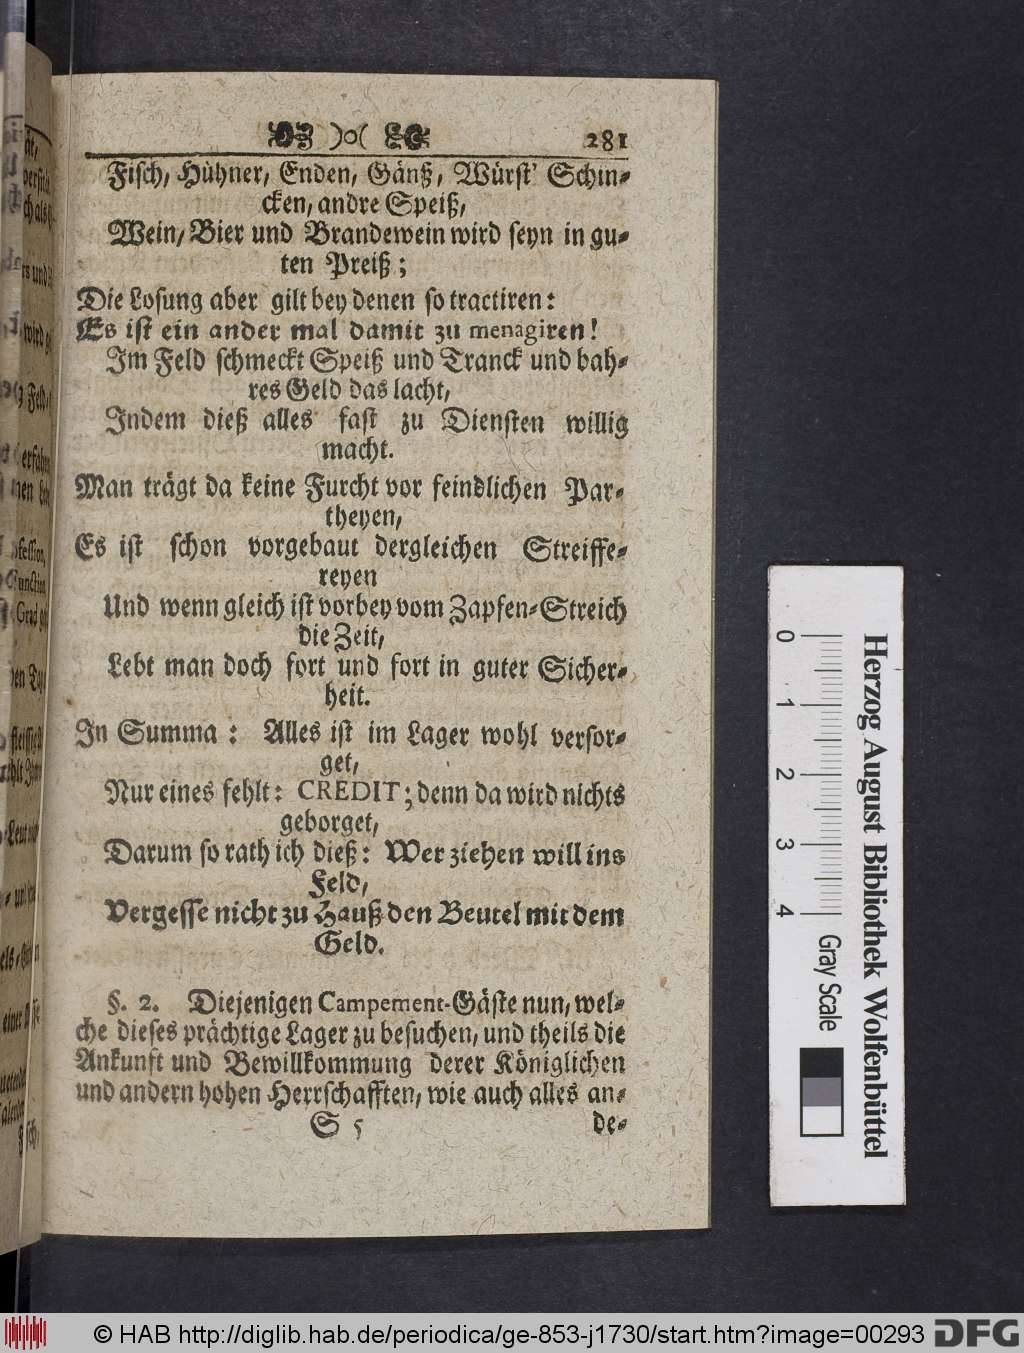 281
Fisch, Hühner, Enden, Gänß, Würst' Schin-
cken, andre Speiß,
Wein, Bier und Brandewein wird seyn in gu-
ten Preiß;
Die Losung aber gilt bey denen so tractiren:
Es ist ein ander mal damit zu menagiren!
Im Feld schmeckt Speiß und Tranck und bah-
res Geld das lacht,
Indem dieß alles fast zu Diensten willig
macht.
Man trägt da keine Furcht vor feindlichen Par-
theyen,
Es ist schon vorgebaut dergleichen Streiffe-
reyen
Und wenn gleich ist vorbey vom Zapfen-Streich
die Zeit,
Lebt man doch fort und fort in guter Sicher-
heit.
In Summa: Alles ist im Lager wohl versor-
get,
Nur eines fehlt: CREDIT; denn da wird nichts
geborget,
Darum so rath ich dieß: Wer ziehen will ins
Feld,
Vergesse nicht zu Hauß den Beutel mit dem
Geld.
§. 2. Diejenigen Campement-Gäste nun, wel-
che dieses prächtige Lager zu besuchen, und theils die
Ankunft und Bewillkommung derer Königlichen
und andern hohen Herrschafften, wie auch alles an-
S 5 de-
0 1 2 3 4
Gray Scale
Herzog August Bibliothek Wolfenbüttel
© HAB http://diglib.hab.de/periodica/ge-853-j1730/start.htm?image=00293 DFG